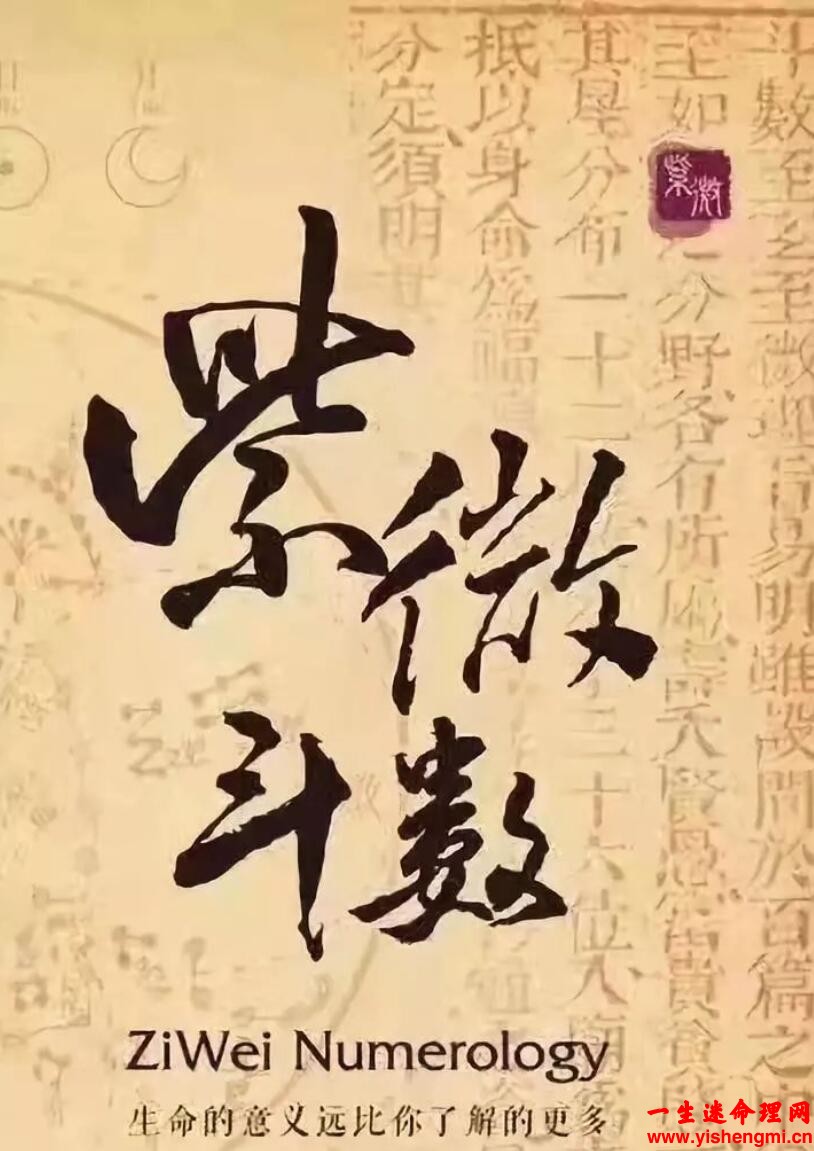 斗數至玄至微理旨易明雖設問於百篇之
至如
分野各有所屬壽夭賢愚富貴貧
其星分布一十二
三十六位入廟
抵以身命爲福
分定須明其
紫微
紫微
斗數
ZiWei Numerology
生命的意义远比你了解的更多
一生迷命理网
www.yishengmi.cn